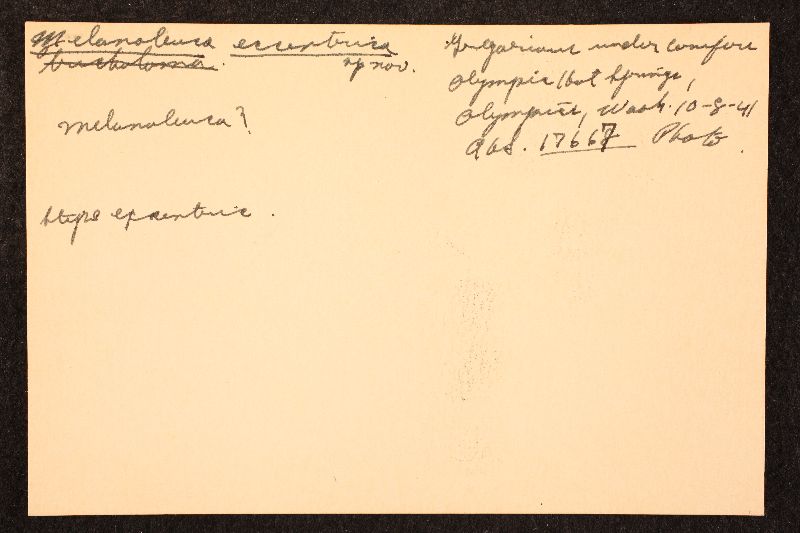 Melanoleuca eccentrica
Tricholoma. sp nov.
Melanoleuca?
Stipe excentric.
Gregarious under conifers
Olympic Hot Springs,
Olympics, Wash. 10-8-41
17667 Photo.